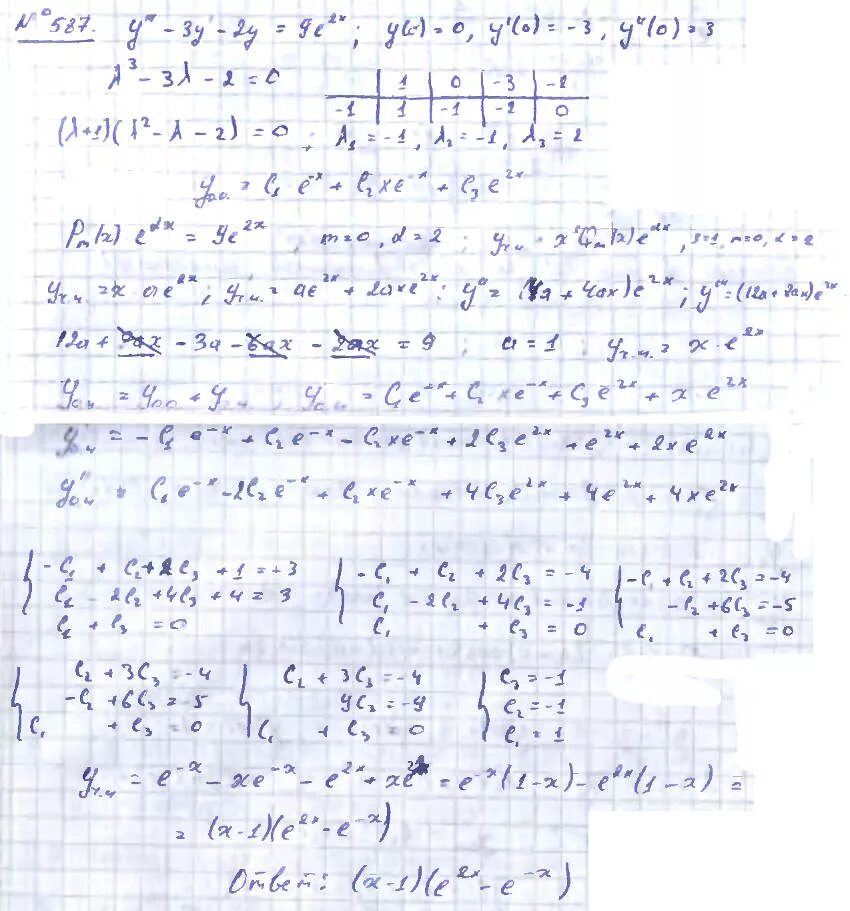 № 587. y''' - 3y' - 2y = 9e^{2x}; y(0) = 0, y'(0) = -3, y''(0) = 3
λ³ - 3λ - 2 = 0
1 0 -3 -2
-1 1 -1 -2 0
(λ+1)(λ² - λ - 2) = 0; λ₁ = -1, λ₂ = -1, λ₃ = 2
y_{о.о.} = C₁ e^{-x} + C₂ x e^{-x} + C₃ e^{2x}
P_m(x) e^{αx} = 9e^{2x} m=0, α=2; y_{ч.н.} = x^s Q_m(x) e^{αx}, s=1, m=0, α=2
y_{ч.н.} = x · a e^{2x}; y'_{ч.н.} = a e^{2x} + 2a x e^{2x}; y'' = (4a + 4ax) e^{2x}; y''' = (12a + 8ax) e^{2x}
12a + 8ax - 3a - 6ax - 2ax = 9; a = 1; y_{ч.н.} = x · e^{2x}
y_{о.н.} = y_{о.о.} + y_{ч.н.} y_{о.н.} = C₁ e^{-x} + C₂ x e^{-x} + C₃ e^{2x} + x · e^{2x}
y'_{о.н.} = -C₁ e^{-x} + C₂ e^{-x} - C₂ x e^{-x} + 2C₃ e^{2x} + e^{2x} + 2x e^{2x}
y''_{о.н.} = C₁ e^{-x} - 2C₂ e^{-x} + C₂ x e^{-x} + 4C₃ e^{2x} + 4e^{2x} + 4x e^{2x}
{ -C₁ + C₂ + 2C₃ + 1 = -3 { -C₁ + C₂ + 2C₃ = -4 { -C₁ + C₂ + 2C₃ = -4
C₁ - 2C₂ + 4C₃ + 4 = 3 C₁ - 2C₂ + 4C₃ = -1 -C₂ + 6C₃ = -5
C₁ + C₃ = 0 C₁ + C₃ = 0 C₁ + C₃ = 0
{ C₂ + 3C₃ = -4 { C₂ + 3C₃ = -4 { C₃ = -1
-C₂ + 6C₃ = -5 9C₃ = -9 C₂ = -1
C₁ + C₃ = 0 C₁ + C₃ = 0 C₁ = 1
y_{ч.н.} = e^{-x} - x e^{-x} - e^{2x} + x e^{2x} = e^{-x}(1-x) - e^{2x}(1-x) =
= (x-1)(e^{2x} - e^{-x})
Ответ: (x-1)(e^{2x} - e^{-x})